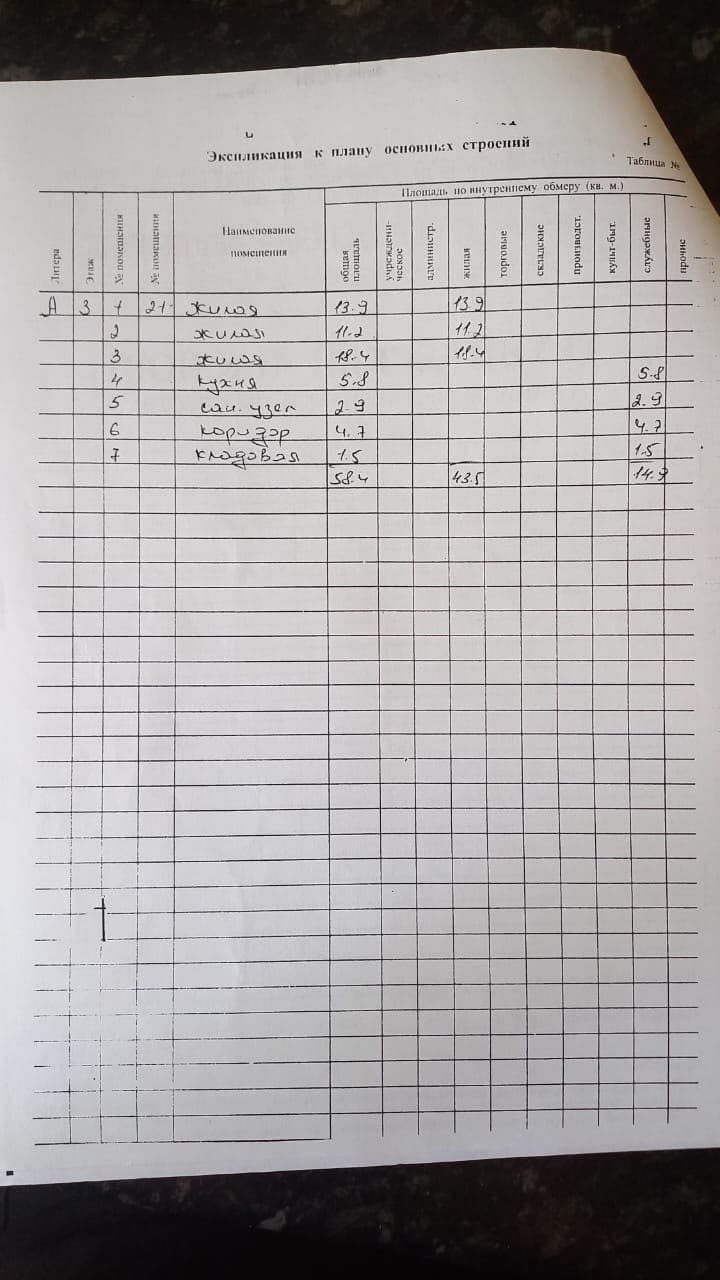 Экспликация к плану основных строений
Таблица №
Литера Этаж № помешения № помешения Наименование помешения Площадь по внутреннему обмеру (кв. м.)
общая площадь учреждени-ческое администр. жилая торговые складские производст. культ-быт. служебные прочие
А 3 1 21 жилая 13.9 13.9
2 жилая 11.2 11.2
3 жилая 18.4 18.4
4 кухня 5.8 5.8
5 сан. узел 2.9 2.9
6 коридор 4.7 4.7
7 кладовая 1.5 1.5
58.4 43.5 14.9